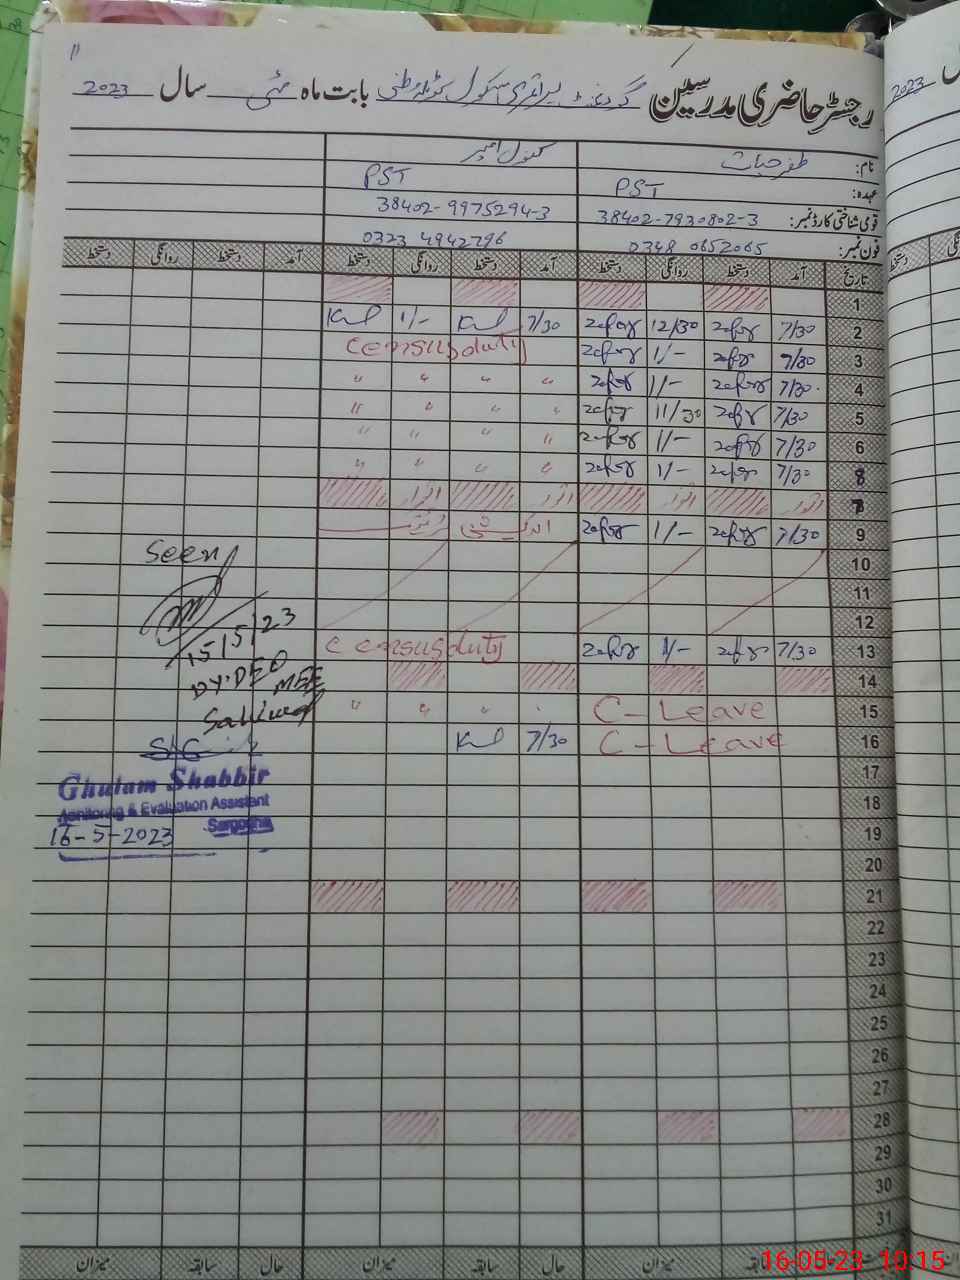 رجسٹر حاضری مدرسین گورنمنٹ پرائمری سکول بابت ماہ مئی سال 2023
نام: ظفر حیات کنول امبر
عہدہ: PST PST
قومی شناختی کارڈ نمبر: 38402-7930802-3 38402-9975294-3
فون نمبر: 0348 0652065 0323 4942796
تاریخ آمد دستخط روانگی دستخط آمد دستخط روانگی دستخط آمد دستخط روانگی دستخط
1
2 7/30 zafar 12/30 zafar 7/30 1/-
3 7/30 zafar 1/- zafar Census duty
4 7/30 zafar 1/- zafar " " " "
5 7/30 zafar 11/30 zafar " " " "
6 7/30 zafar 1/- zafar " " " "
8 7/30 zafar 1/- zafar " " " "
7 اتوار اتوار اتوار اتوار
9 7/30 zafar 1/- zafar
10
11
12
13 7/30 zafar 1/- zafar Census duty
14
15 C-Leave " " "
16 C-Leave 7/30
17
18
19
20
21
22
23
24
25
26
27
28
29
30
31
Seen
15/5/23
DY.DEO
MEE
Sahiwal
Ghulam Shabbir
Monitoring & Evaluation Assistant
Sargodha
16-5-2023
حال سابقہ میزان حال سابقہ میزان حال سابقہ میزان
16-05-23 10:15
2023